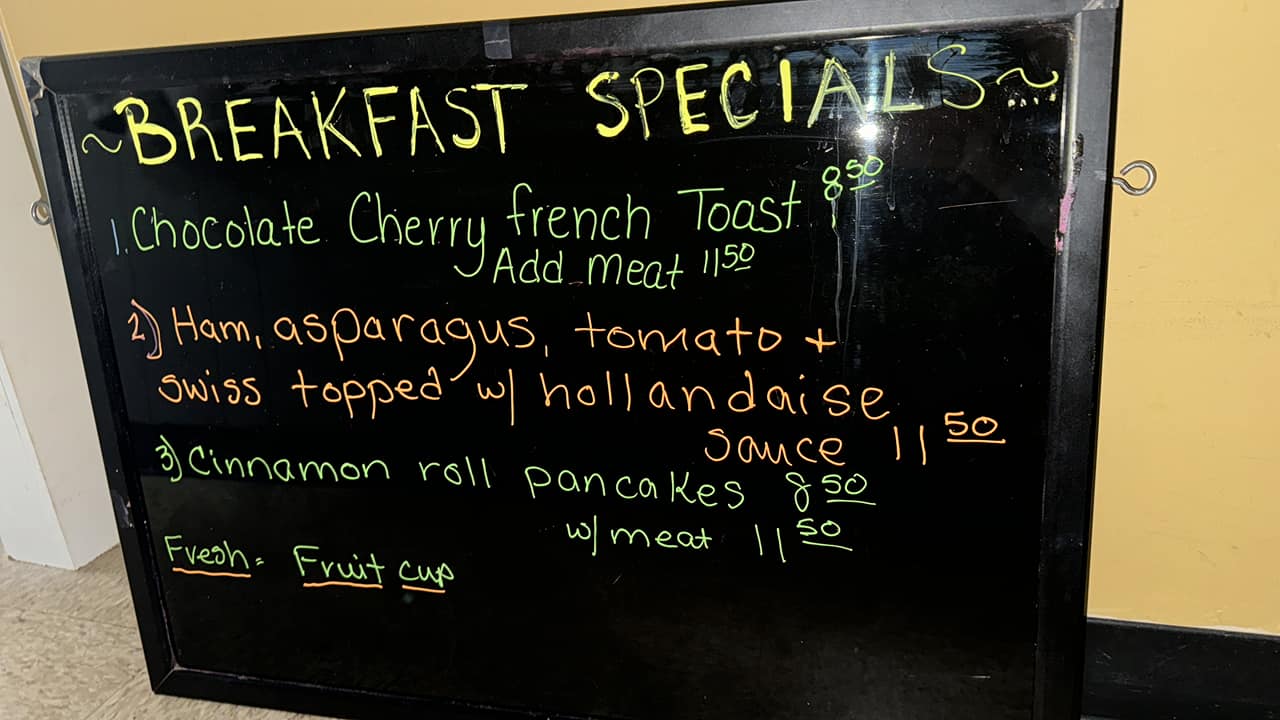 ~BREAKFAST SPECIALS~
1. Chocolate Cherry french Toast 8 50
Add meat 11 50
2) Ham, asparagus, tomato +
swiss topped w/ hollandaise
sauce 11 50
3) Cinnamon roll pancakes 8 50
w/ meat 11 50
Fresh = Fruit cup